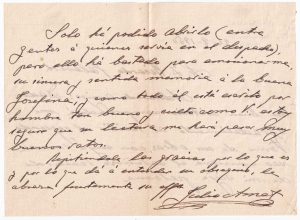 Solo há podido Abrirlo (entre
gentes á quienes servia en el despacho),
pero ello há bastado para emocionarme,
su sincera y sentida memoria á la buena
Josefina; y como todo él está escrito por
hombre tan bueno y culto como V. estoy
seguro que su lectura me hará pasar muy
buenos ratos.
Repitiendole las gracias por lo que es
y por lo que dá á entender su obsequio, le
abraza fuertemente su affo
Julio